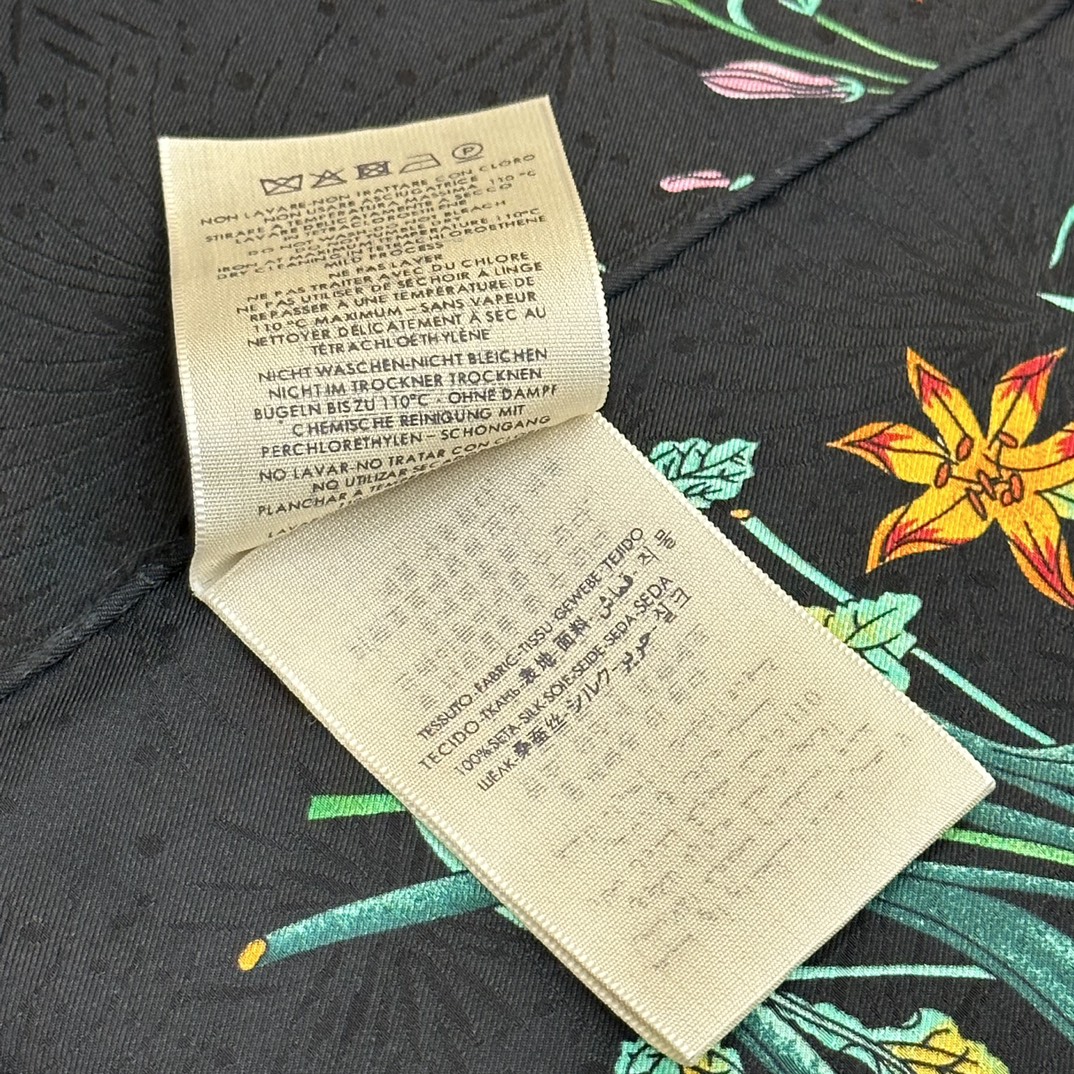 P
NON LAVARE-NON TRATTARE CON CLORO
NON USARE ASCIUGATRICE
STIRARE A TEMPERATURA MASSIMA 110 °C
LAVARE DELICATAMENTE A SECCO
IN TETRACLOROETILENE
DO NOT WASH-DO NOT BLEACH
DO NOT TUMBLE DRY
IRON AT MAXIMUM TEMPERATURE 110°C
DRY CLEANING IN TETRACHLOROETHENE
MILD PROCESS
NE PAS LAVER
NE PAS TRAITER AVEC DU CHLORE
NE PAS UTILISER DE SÉCHOIR À LINGE
REPASSER A UNE TEMPÉRATURE DE
110 °C MAXIMUM – SANS VAPEUR
NETTOYER DÉLICATEMENT À SEC AU
TÉTRACHLOÉTHYLÈNE
NICHT WASCHEN-NICHT BLEICHEN
NICHT IM TROCKNER TROCKNEN
BÜGELN BIS ZU 110°C - OHNE DAMPF
CHEMISCHE REINIGUNG MIT
PERCHLORETHYLEN – SCHONGANG
NO LAVAR-NO TRATAR CON
NO UTILIZAR
PLANCHAR A
TESSUTO-FABRIC-TISSU-GEWEBE-TEJIDO
TECIDO-ТКАНЬ-表地-面料-قماش-직물
100%SETA-SILK-SOIE-SEIDE-SEDA-SEDA
ШЕЛК-桑蚕丝-シルク-حرير-실크